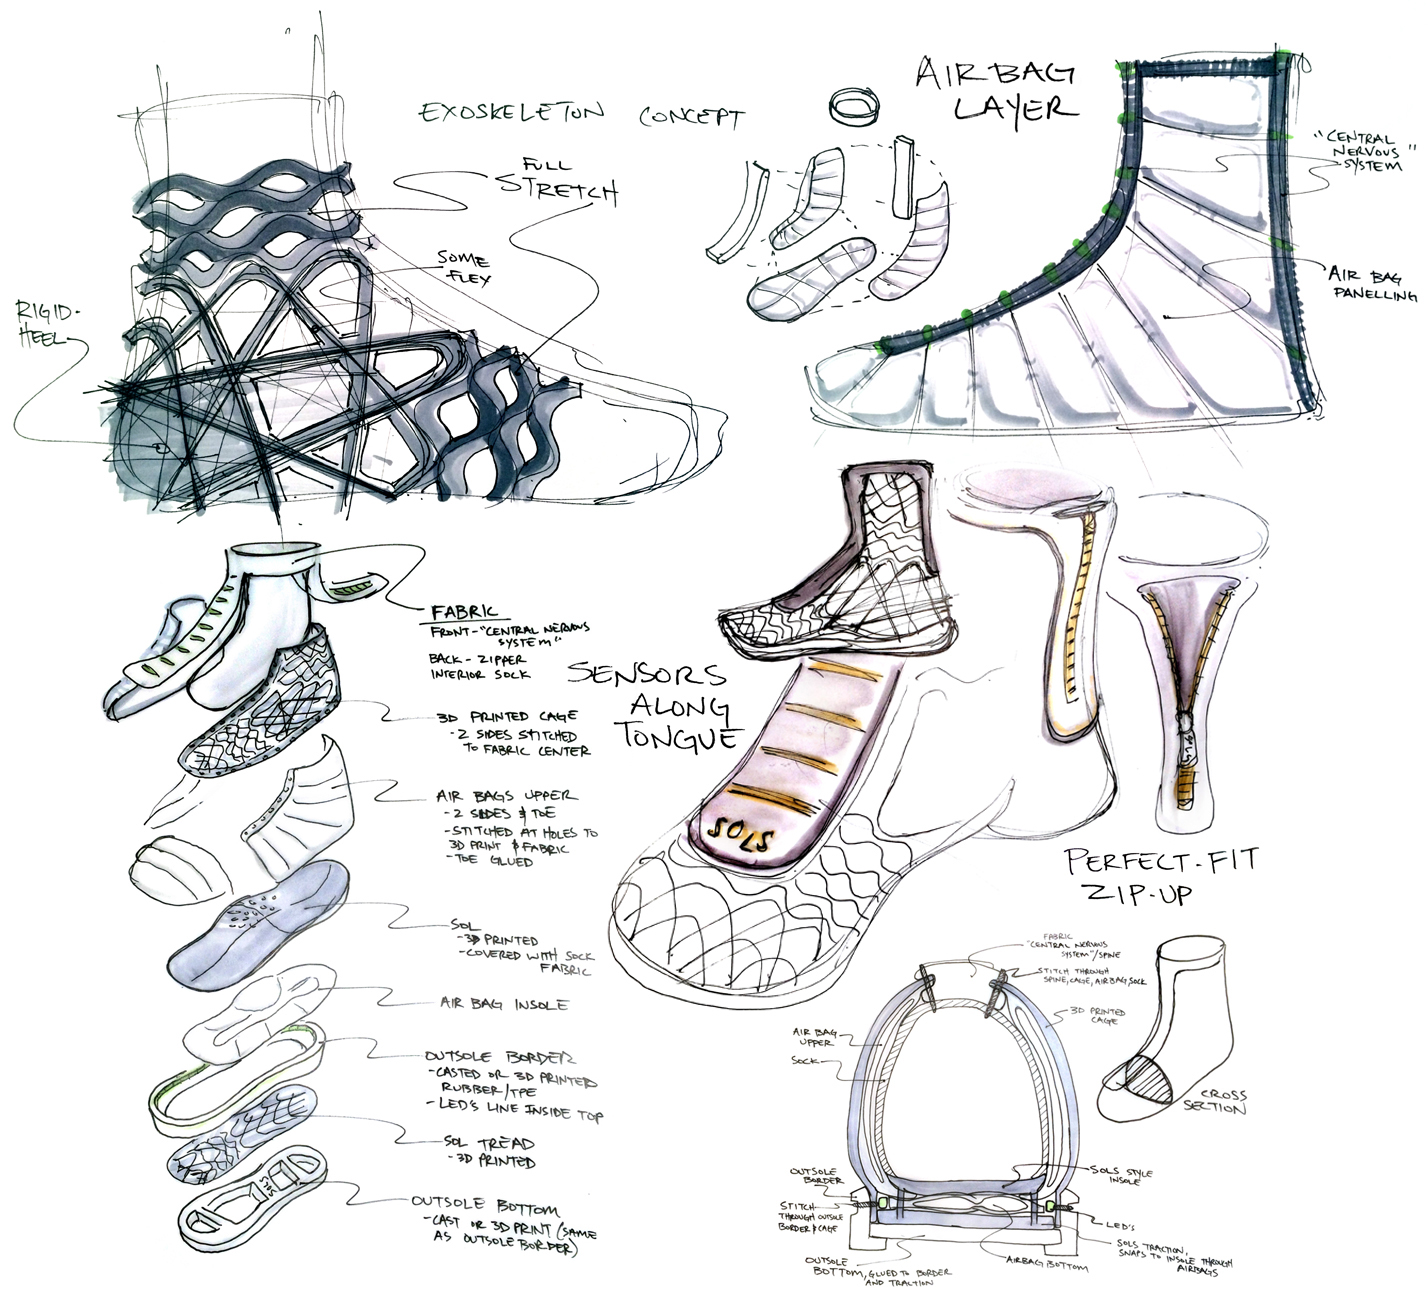 EXOSKELETON CONCEPT
FULL
STRETCH
SOME
FLEX
RIGID-
HEEL
AIRBAG
LAYER
"CENTRAL
NERVOUS"
SYSTEM
AIR BAG
PANELLING
FABRIC
FRONT-"CENTRAL NERVOUS
SYSTEM"
BACK- ZIPPER
INTERIOR SOCK
3D PRINTED CAGE
-2 SIDES STITCHED
TO FABRIC CENTER
AIR BAGS UPPER
-2 SIDES & TOE
-STITCHED AT HOLES TO
3D PRINT & FABRIC
-TOE GLUED
SOL
-3D PRINTED
-COVERED WITH SOCK
FABRIC
AIR BAG INSOLE
OUTSOLE BORDER
-CASTED OR 3D PRINTED
RUBBER/TPE
-LED'S LINE INSIDE TOP
SOL TREAD
-3D PRINTED
OUTSOLE BOTTOM
-CAST OR 3D PRINT (SAME
AS OUTSOLE BORDER)
SOLS
SENSORS
ALONG
TONGUE
SOLS
PERFECT-FIT
ZIP-UP
FABRIC
"CENTRAL NERVOUS
SYSTEM"/SPINE
STITCH THROUGH
SPINE, CAGE, AIRBAG, SOCK
3D PRINTED
CAGE
AIR BAG
UPPER
SOCK
CROSS
SECTION
OUTSOLE
BORDER
STITCH
THROUGH OUTSOLE
BORDER & CAGE
SOLS STYLE
INSOLE
LED'S
SOLS TRACTION,
SNAPS TO INSOLE THROUGH
AIRBAGS
AIRBAG BOTTOM
OUTSOLE
BOTTOM, GLUED TO BORDER
AND TRACTION